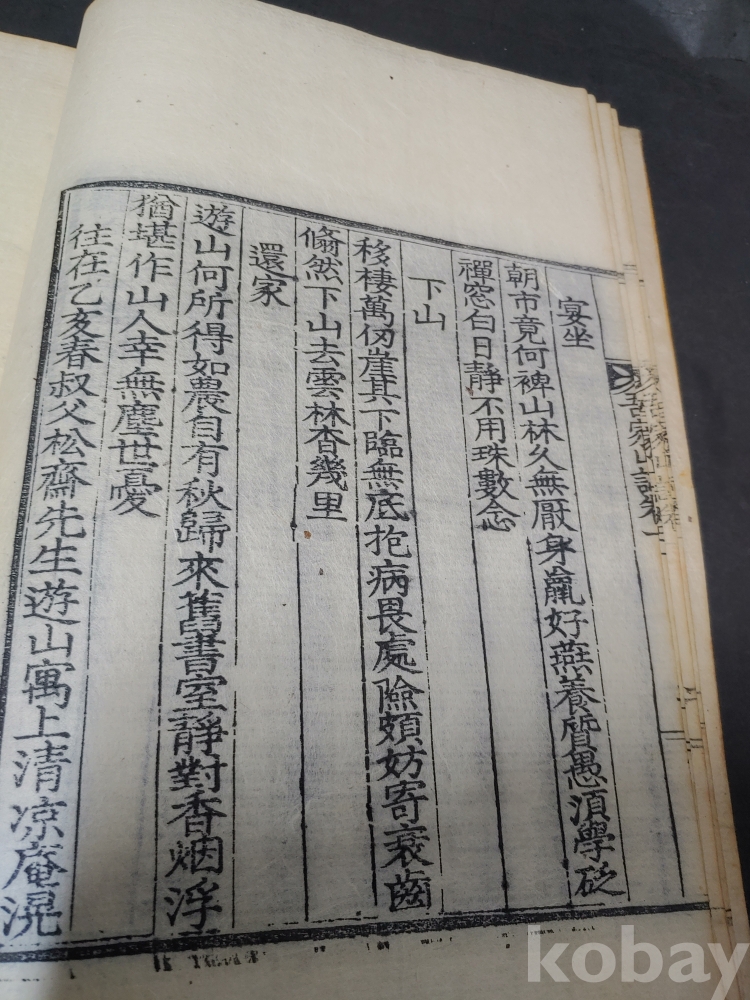 宴坐
朝市竟何裨山林久無厭身羸好燕養質愚須學砭
禪窓白日靜不用珠數念
下山
移棲萬仞崖其下臨無底抱病畏處險頗妨寄衰齒
翛然下山去雲林杳幾里
還家
遊山何所得如農自有秋歸來舊書室靜對香烟浮
猶堪作山人幸無塵世憂
往在乙亥春叔父松齋先生遊山寓上清凉庵滉
吾家山誌卷
kobay